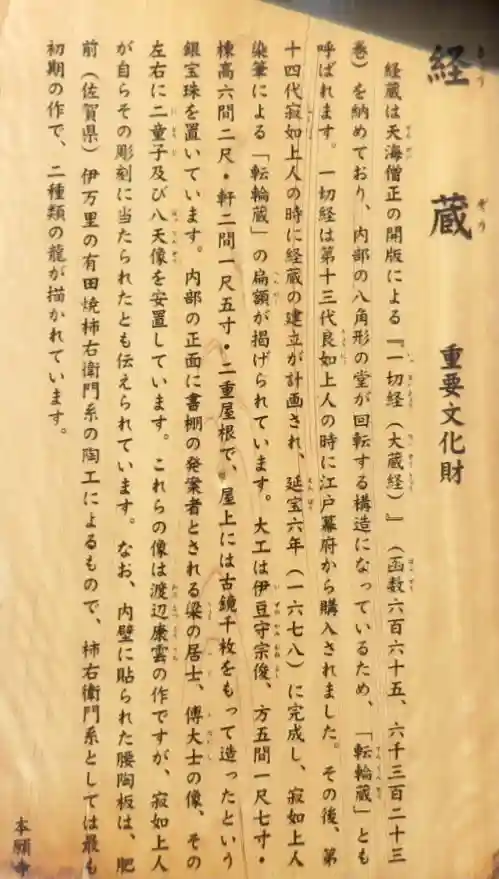 経蔵 重要文化財
きょう ぞう
経蔵は天海僧正の開版による『一切経（大蔵経）』（函数六百六十五、六千三百二十三
巻）を納めており、内部の八角形の堂が回転する構造になっているため、「転輪蔵」とも
呼ばれます。一切経は第十三代良如上人の時に江戸幕府から購入されました。その後、第
十四代寂如上人の時に経蔵の建立が計画され、延宝六年（一六七八）に完成し、寂如上人
染筆による「転輪蔵」の扁額が掲げられています。大工は伊豆守宗俊、方五間一尺七寸・
棟高六間二尺・軒二間一尺五寸・二重屋根で、屋上には古鏡千枚をもって造ったという
銀宝珠を置いています。内部の正面に書棚の発案者とされる梁の居士、傅大士の像、その
左右に二童子及び八天像を安置しています。これらの像は渡辺康雲の作ですが、寂如上人
が自らその彫刻に当たられたとも伝えられています。なお、内壁に貼られた腰陶板は、肥
前（佐賀県）伊万里の有田焼柿右衛門系の陶工によるもので、柿右衛門系としては最も
初期の作で、二種類の龍が描かれています。
本願寺